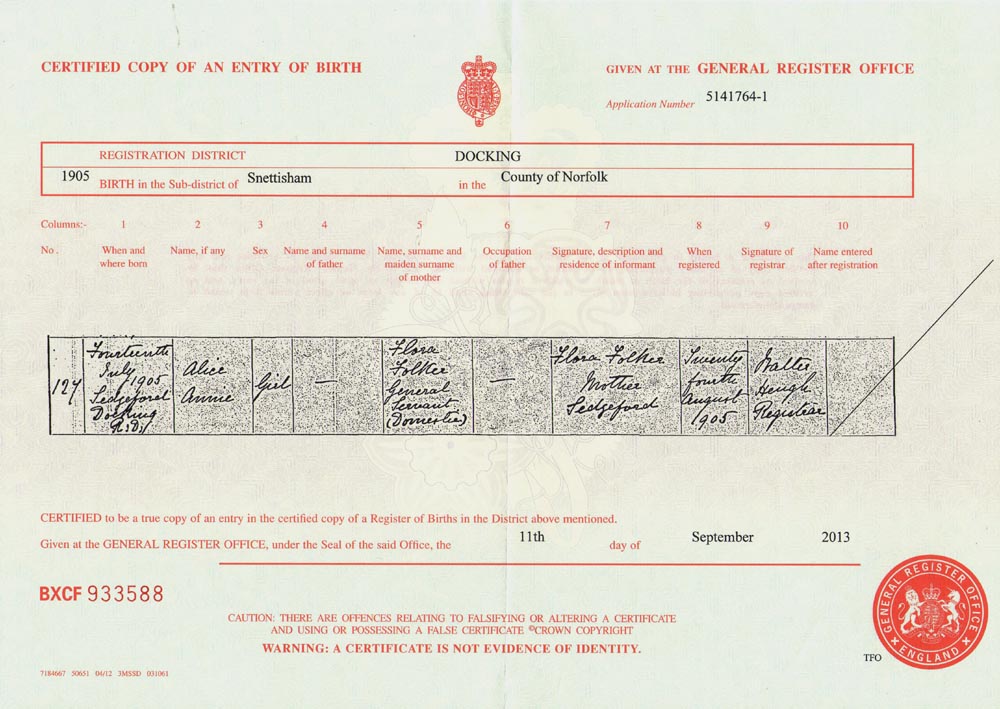 CERTIFIED COPY OF AN ENTRY OF BIRTH
GIVEN AT THE GENERAL REGISTER OFFICE
Application Number 5141764-1
REGISTRATION DISTRICT DOCKING
1905 BIRTH in the Sub-district of Snettisham in the County of Norfolk
Columns:- 1 2 3 4 5 6 7 8 9 10
No. When and where born
Name, if any
Sex
Name and surname of father
Name, surname and maiden surname of mother
Occupation of father
Signature, description and residence of informant
When registered
Signature of registrar
Name entered after registration
127
Fourteenth
July 1905
Sedgeford
Docking
R.D.
Alice
Annie
Girl
—
Flora
Folker
General
Servant
(Domestic)
—
Flora Folker
Mother
Sedgeford
Twenty
fourth
August
1905
Walter
Registrar
CERTIFIED to be a true copy of an entry in the certified copy of a Register of Births in the District above mentioned.
Given at the GENERAL REGISTER OFFICE, under the Seal of the said Office, the 11th day of September 2013
BXCF 933588
CAUTION: THERE ARE OFFENCES RELATING TO FALSIFYING OR ALTERING A CERTIFICATE
AND USING OR POSSESSING A FALSE CERTIFICATE ©CROWN COPYRIGHT
WARNING: A CERTIFICATE IS NOT EVIDENCE OF IDENTITY.
GENERAL REGISTER OFFICE
ENGLAND
TFO
7184667 50651 04/12 3MSSD 031061